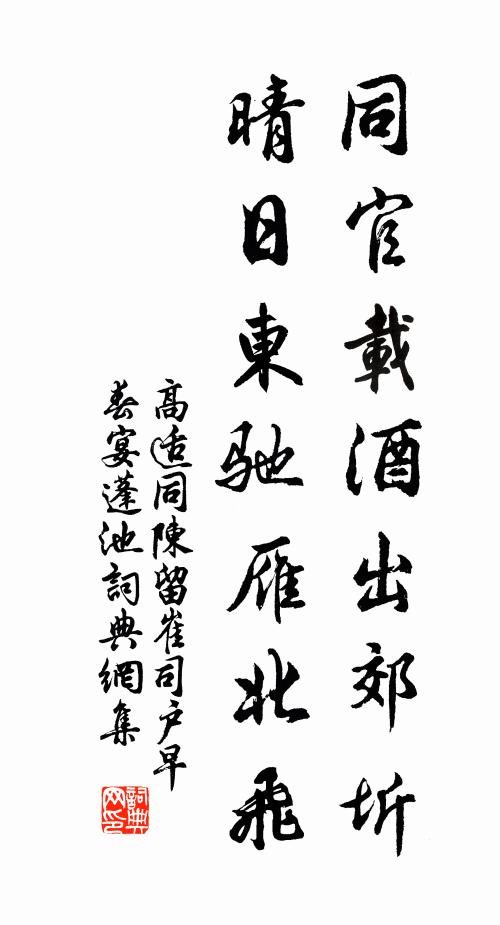 同官載酒出郊圻
晴日東馳雁北飛
高适同陳留崔司户早
春宴蓬池詞典網集
詞典网印